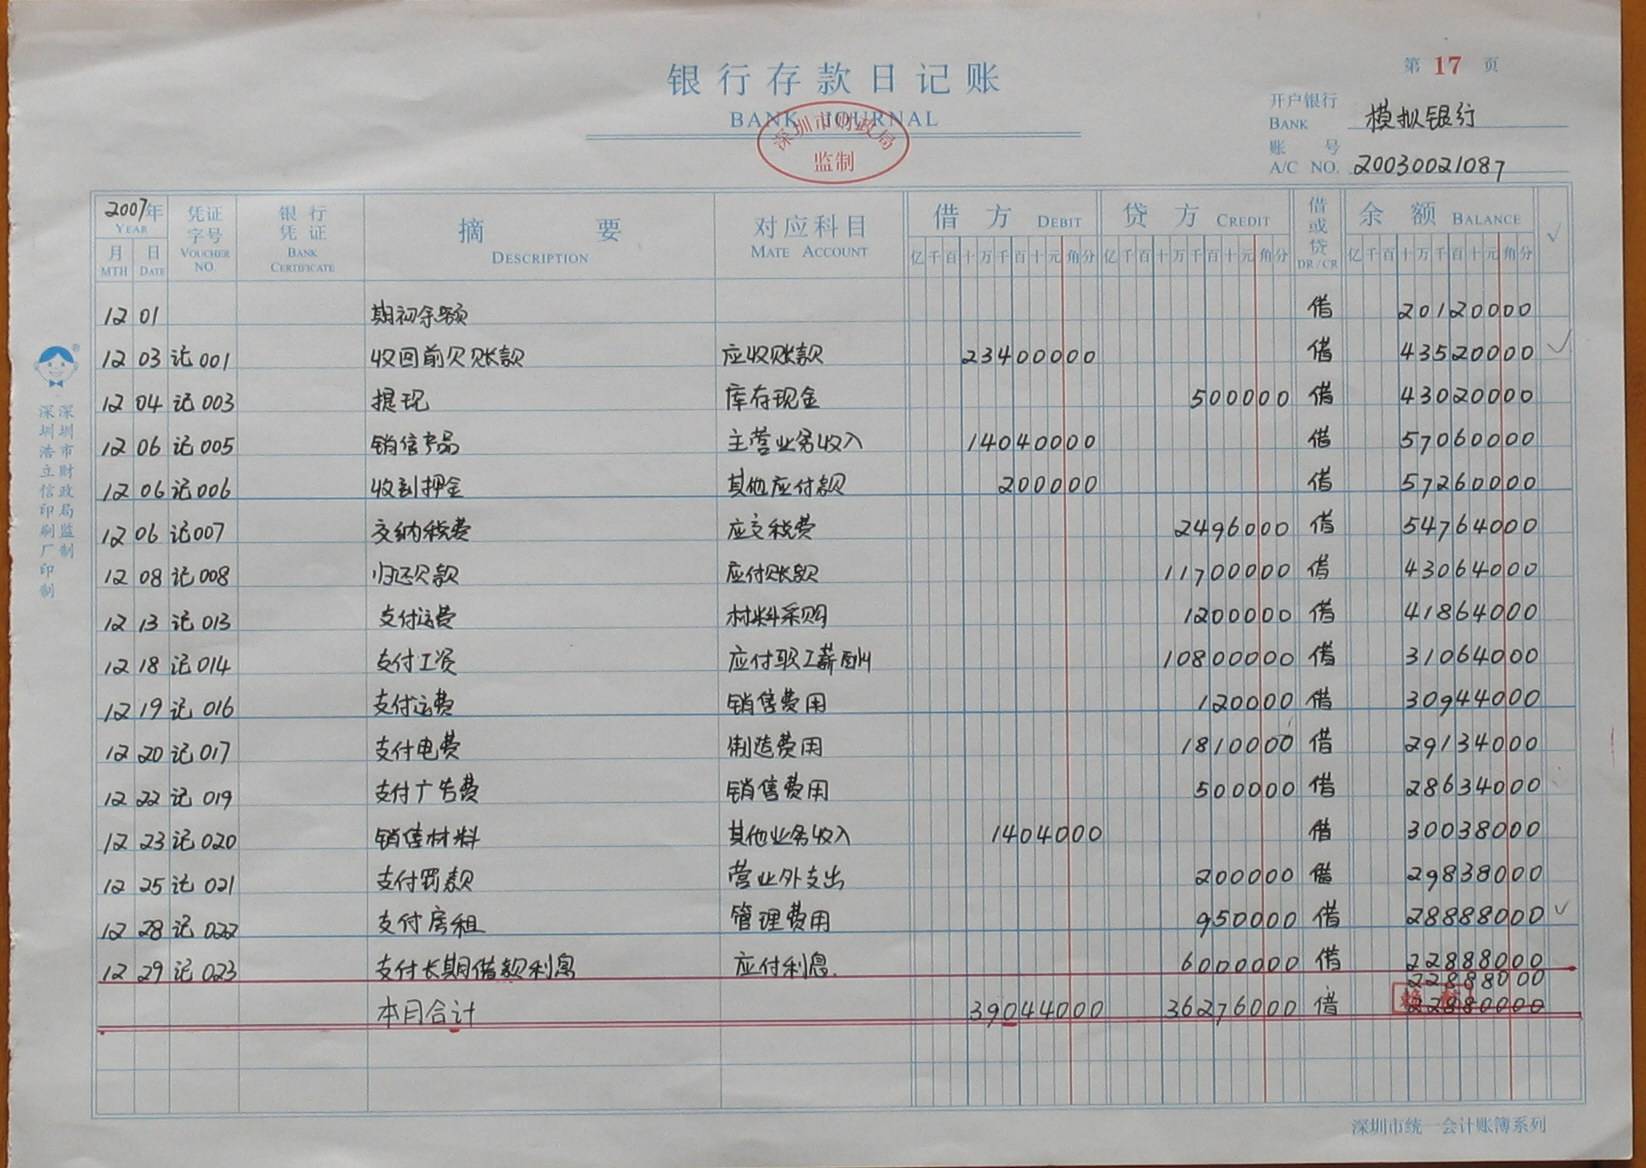 银行存款日记账
BANK JOURNAL
深圳市财政局
监制
第 17 页
开户银行 BANK 模拟银行
账号 A/C NO. 20030021087
2007年 YEAR 凭证字号 VOUCHER NO. 银行凭证 BANK CERTIFICATE 摘要 DESCRIPTION 对应科目 MATE ACCOUNT 借方 DEBIT 贷方 CREDIT 借或贷 DR/CR 余额 BALANCE √
月 MTH 日 DATE 亿千百十万千百十元角分 亿千百十万千百十元角分 亿千百十万千百十元角分
12 01 期初余额 借 20120000
12 03 记001 收回前欠账款 应收账款 23400000 借 43520000 √
12 04 记003 提现 库存现金 500000 借 43020000
12 06 记005 销售产品 主营业务收入 14040000 借 57060000
12 06 记006 收到押金 其他应付款 200000 借 57260000
12 06 记007 交纳税费 应交税费 2496000 借 54764000
12 08 记008 归还欠款 应付账款 11700000 借 43064000
12 13 记013 支付运费 材料采购 1200000 借 41864000
12 18 记014 支付工资 应付职工薪酬 10800000 借 31064000
12 19 记016 支付运费 销售费用 120000 借 30944000
12 20 记017 支付电费 制造费用 1810000 借 29134000
12 22 记019 支付广告费 销售费用 500000 借 28634000
12 23 记020 销售材料 其他业务收入 1404000 借 30038000
12 25 记021 支付罚款 营业外支出 200000 借 29838000
12 28 记022 支付房租 管理费用 950000 借 28888000 √
12 29 记023 支付长期借款利息 应付利息 6000000 借 22888000
22888000
本月合计 39044000 36276000 借 22880000
深圳市财政局监制
深圳浩立信印刷厂印制
深圳市统一会计账簿系列